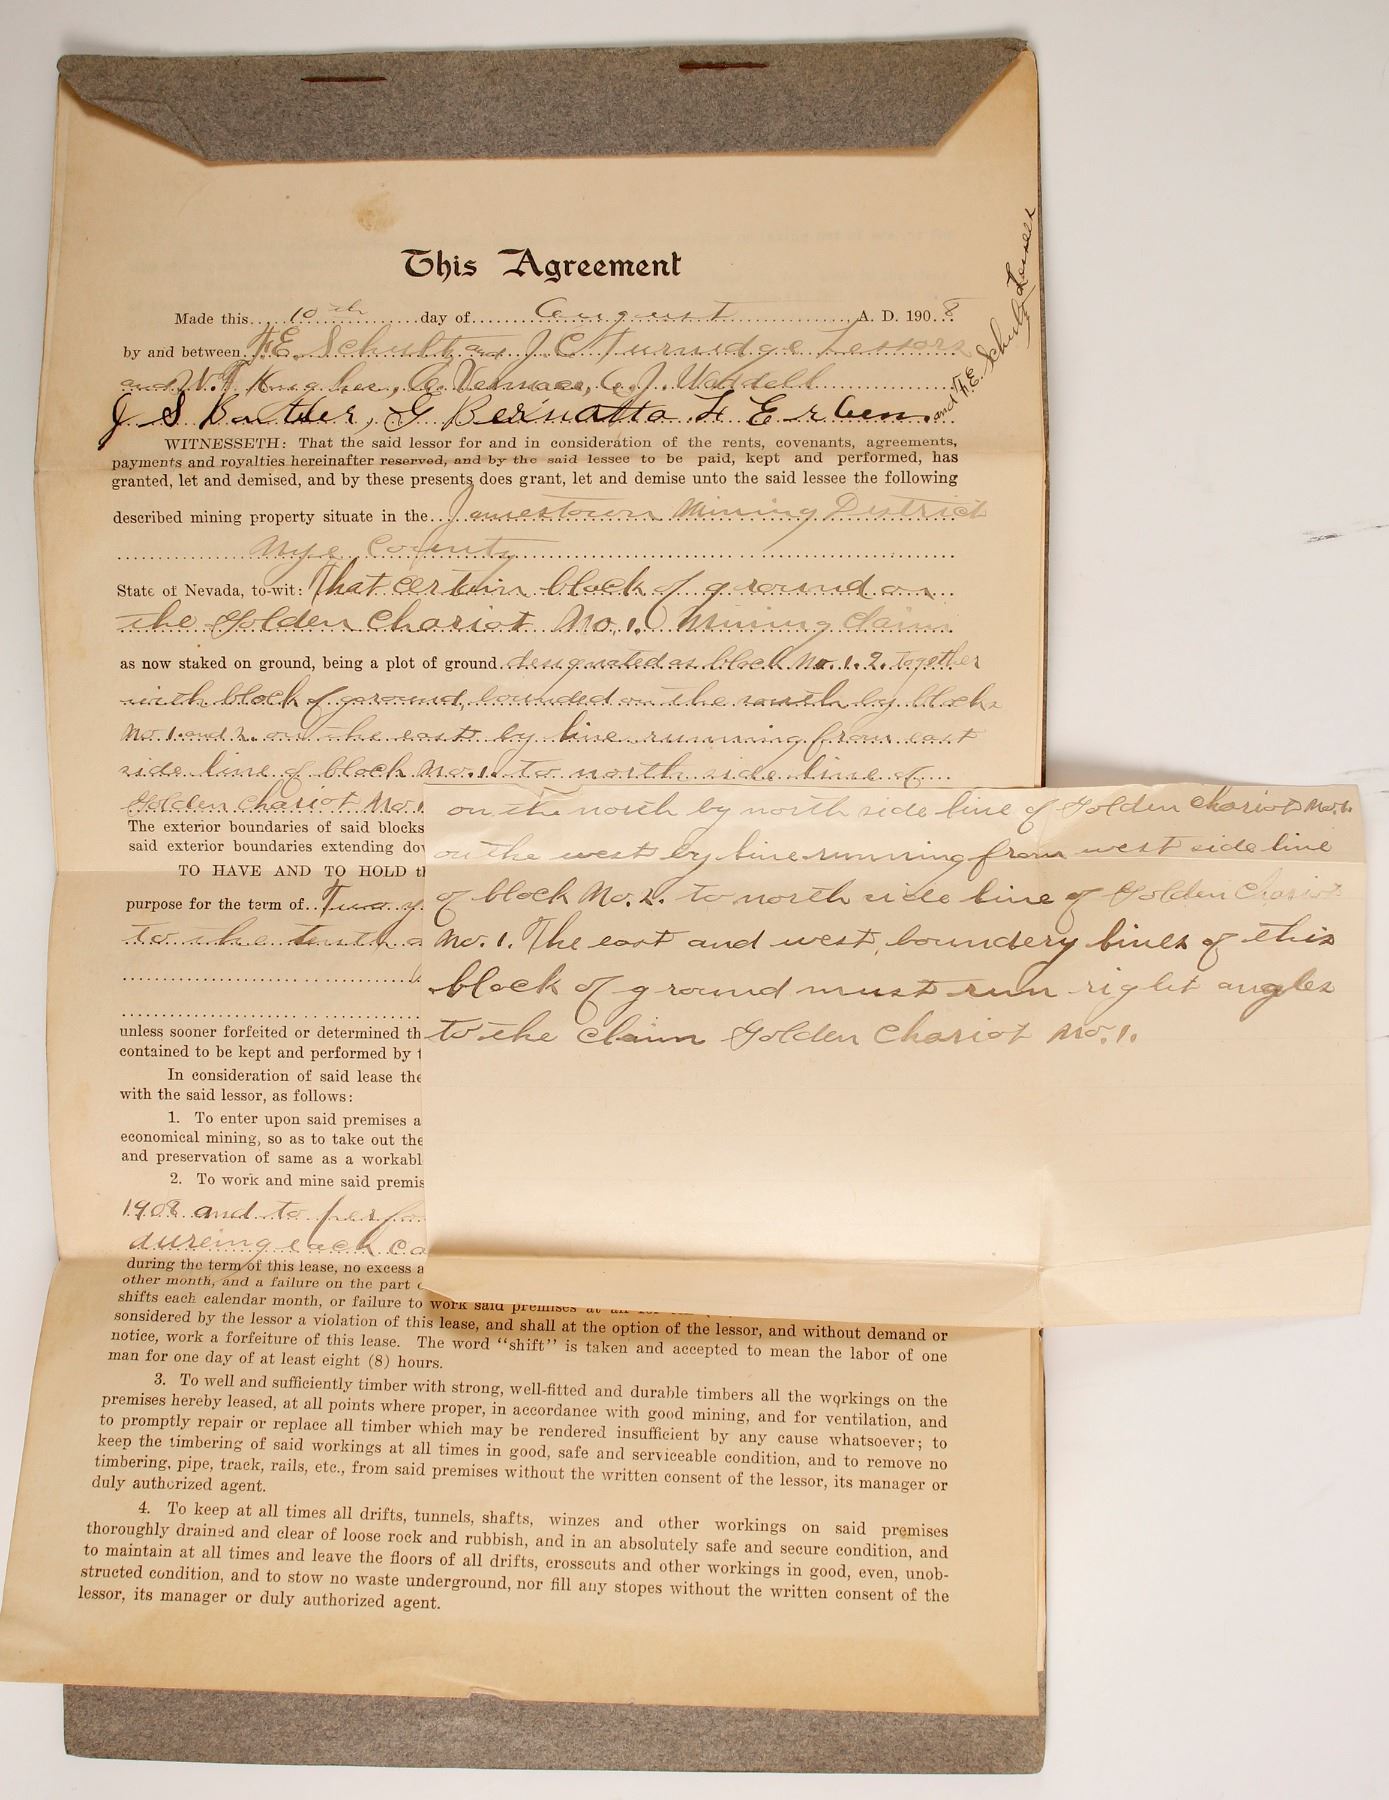 This Agreement
Made this 10th day of August A. D. 1908
by and between F.E. Schultz and J C Turnidge Lessors
and W.T. Hughes, C. A. J. Waddell
J S Butler, G Bernatto H E Erben. and F.E. Schultz Lessees
WITNESSETH: That the said lessor for and in consideration of the rents, covenants, agreements,
payments and royalties hereinafter reserved, and by the said lessee to be paid, kept and performed, has
granted, let and demised, and by these presents does grant, let and demise unto the said lessee the following
described mining property situate in the Jamestown Mining District
Nye County
State of Nevada, to-wit: That certain block of ground on
the Golden Chariot No. 1. Mining Claim.
as now staked on ground, being a plot of ground designated as block No. 1. 2. together
with block of ground, bounded on the south by blocks
No. 1. and 2. on the east by line running from east
side line of block No. 1. to north side line of
Golden Chariot No. 1
The exterior boundaries of said blocks
said exterior boundaries extending do
TO HAVE AND TO HOLD t
purpose for the term of Two y
to the tenth
unless sooner forfeited or determined th
contained to be kept and performed by t
In consideration of said lease the
with the said lessor, as follows:
1. To enter upon said premises a
economical mining, so as to take out the
and preservation of same as a workabl
2. To work and mine said premis
1908 and to perfo
dureing each ca
during the term of this lease, no excess a
other month, and a failure on the part
shifts each calendar month, or failure to work said premises at all for
sonsidered by the lessor a violation of this lease, and shall at the option of the lessor, and without demand or
notice, work a forfeiture of this lease. The word "shift" is taken and accepted to mean the labor of one
man for one day of at least eight (8) hours.
3. To well and sufficiently timber with strong, well-fitted and durable timbers all the workings on the
premises hereby leased, at all points where proper, in accordance with good mining, and for ventilation, and
to promptly repair or replace all timber which may be rendered insufficient by any cause whatsoever; to
keep the timbering of said workings at all times in good, safe and serviceable condition, and to remove no
timbering, pipe, track, rails, etc., from said premises without the written consent of the lessor, its manager or
duly authorized agent.
4. To keep at all times all drifts, tunnels, shafts, winzes and other workings on said premises
thoroughly drained and clear of loose rock and rubbish, and in an absolutely safe and secure condition, and
to maintain at all times and leave the floors of all drifts, crosscuts and other workings in good, even, unob-
structed condition, and to stow no waste underground, nor fill any stopes without the written consent of the
lessor, its manager or duly authorized agent.
on the north by north side line of Golden Chariot No. 1.
on the west by line running from west side line
of block No. 2. to north side line of Golden Chariot
No. 1. The east and west, boundery lines of this
block of ground must run right angles
to the claim Golden Chariot No. 1.